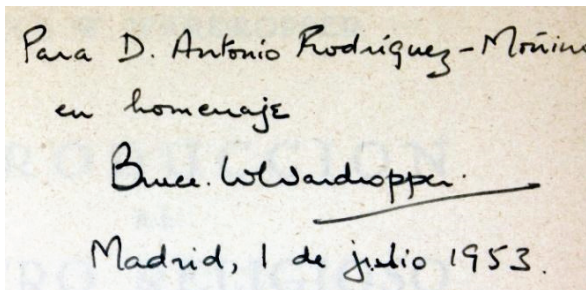 Para D. Antonio Rodríguez-Moñino
en homenaje
Bruce W Wardropper.
Madrid, 1 de julio 1953.